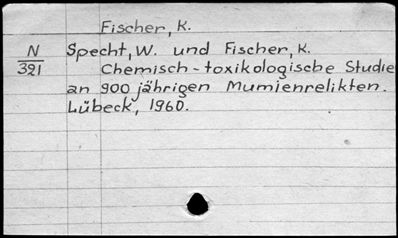 Fischer, K.
N Specht, W. und Fischer, K.
321 Chemisch-toxikologische Studie
an 900 jährigen Mumienrelikten.
Lübeck, 1960.